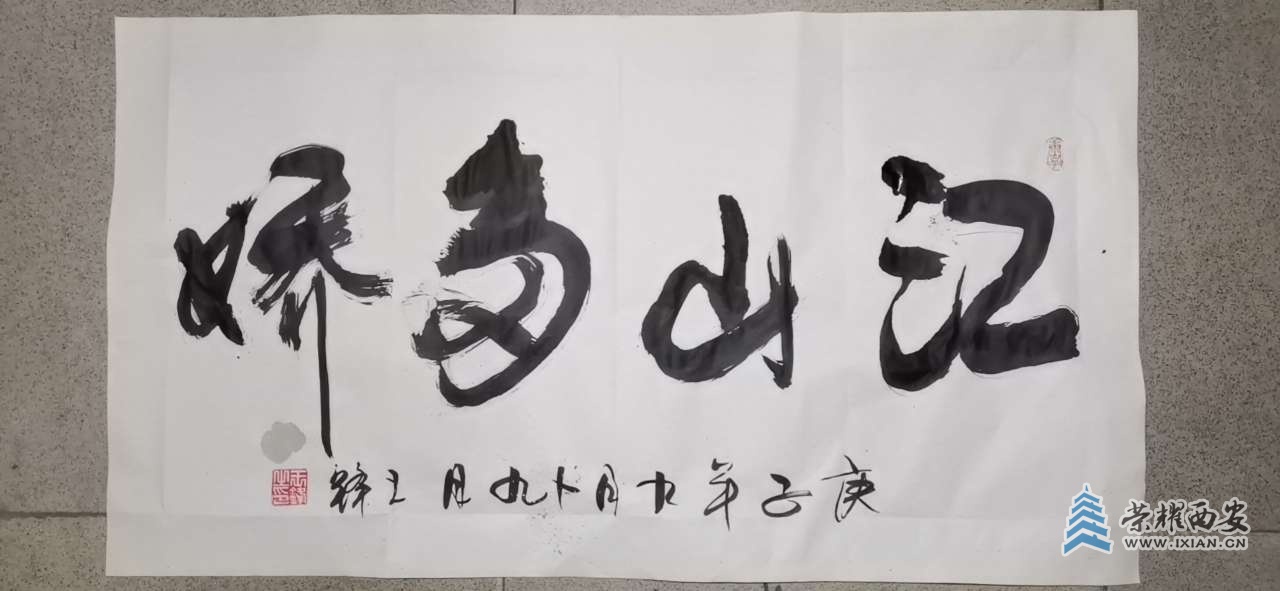 江山多娇
庚子年九月十九日王锋
荣耀西安
WWW.IXIAN.CN